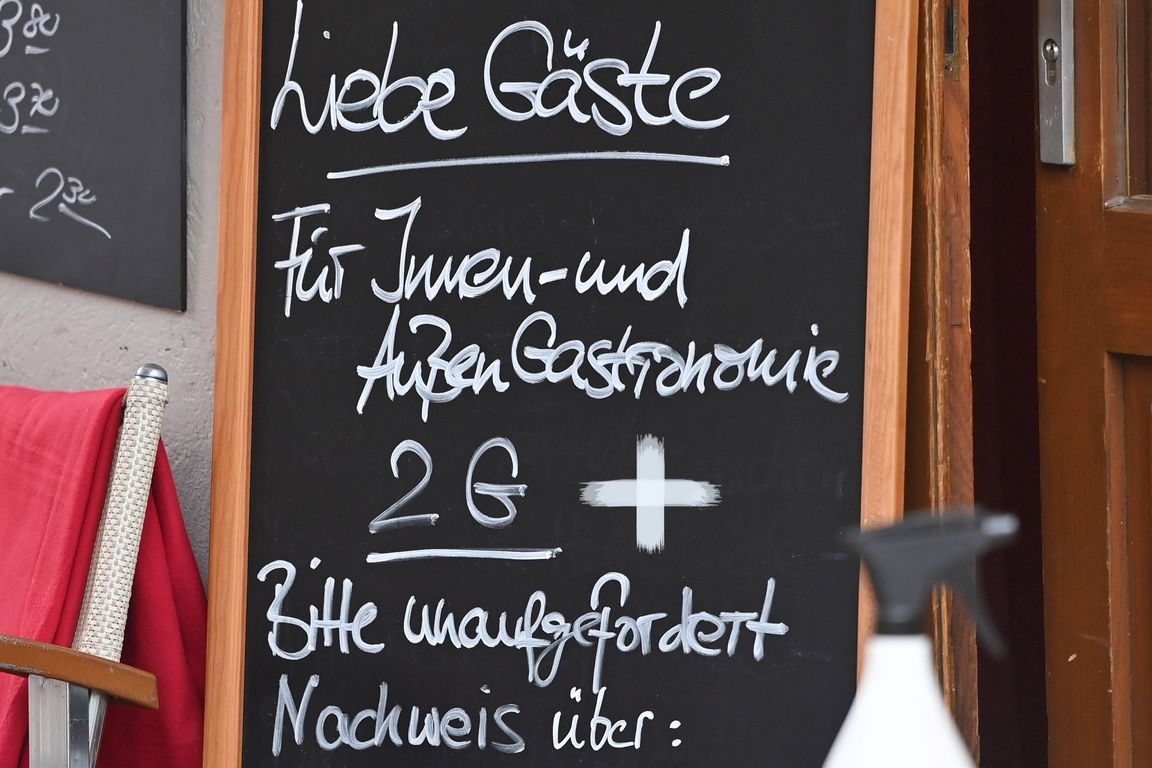 3 80
3 20
2 30
Liebe Gäste
Für Innen-und
Außen Gastronomie
2 G +
Bitte unaufgefordert
Nachweis über: